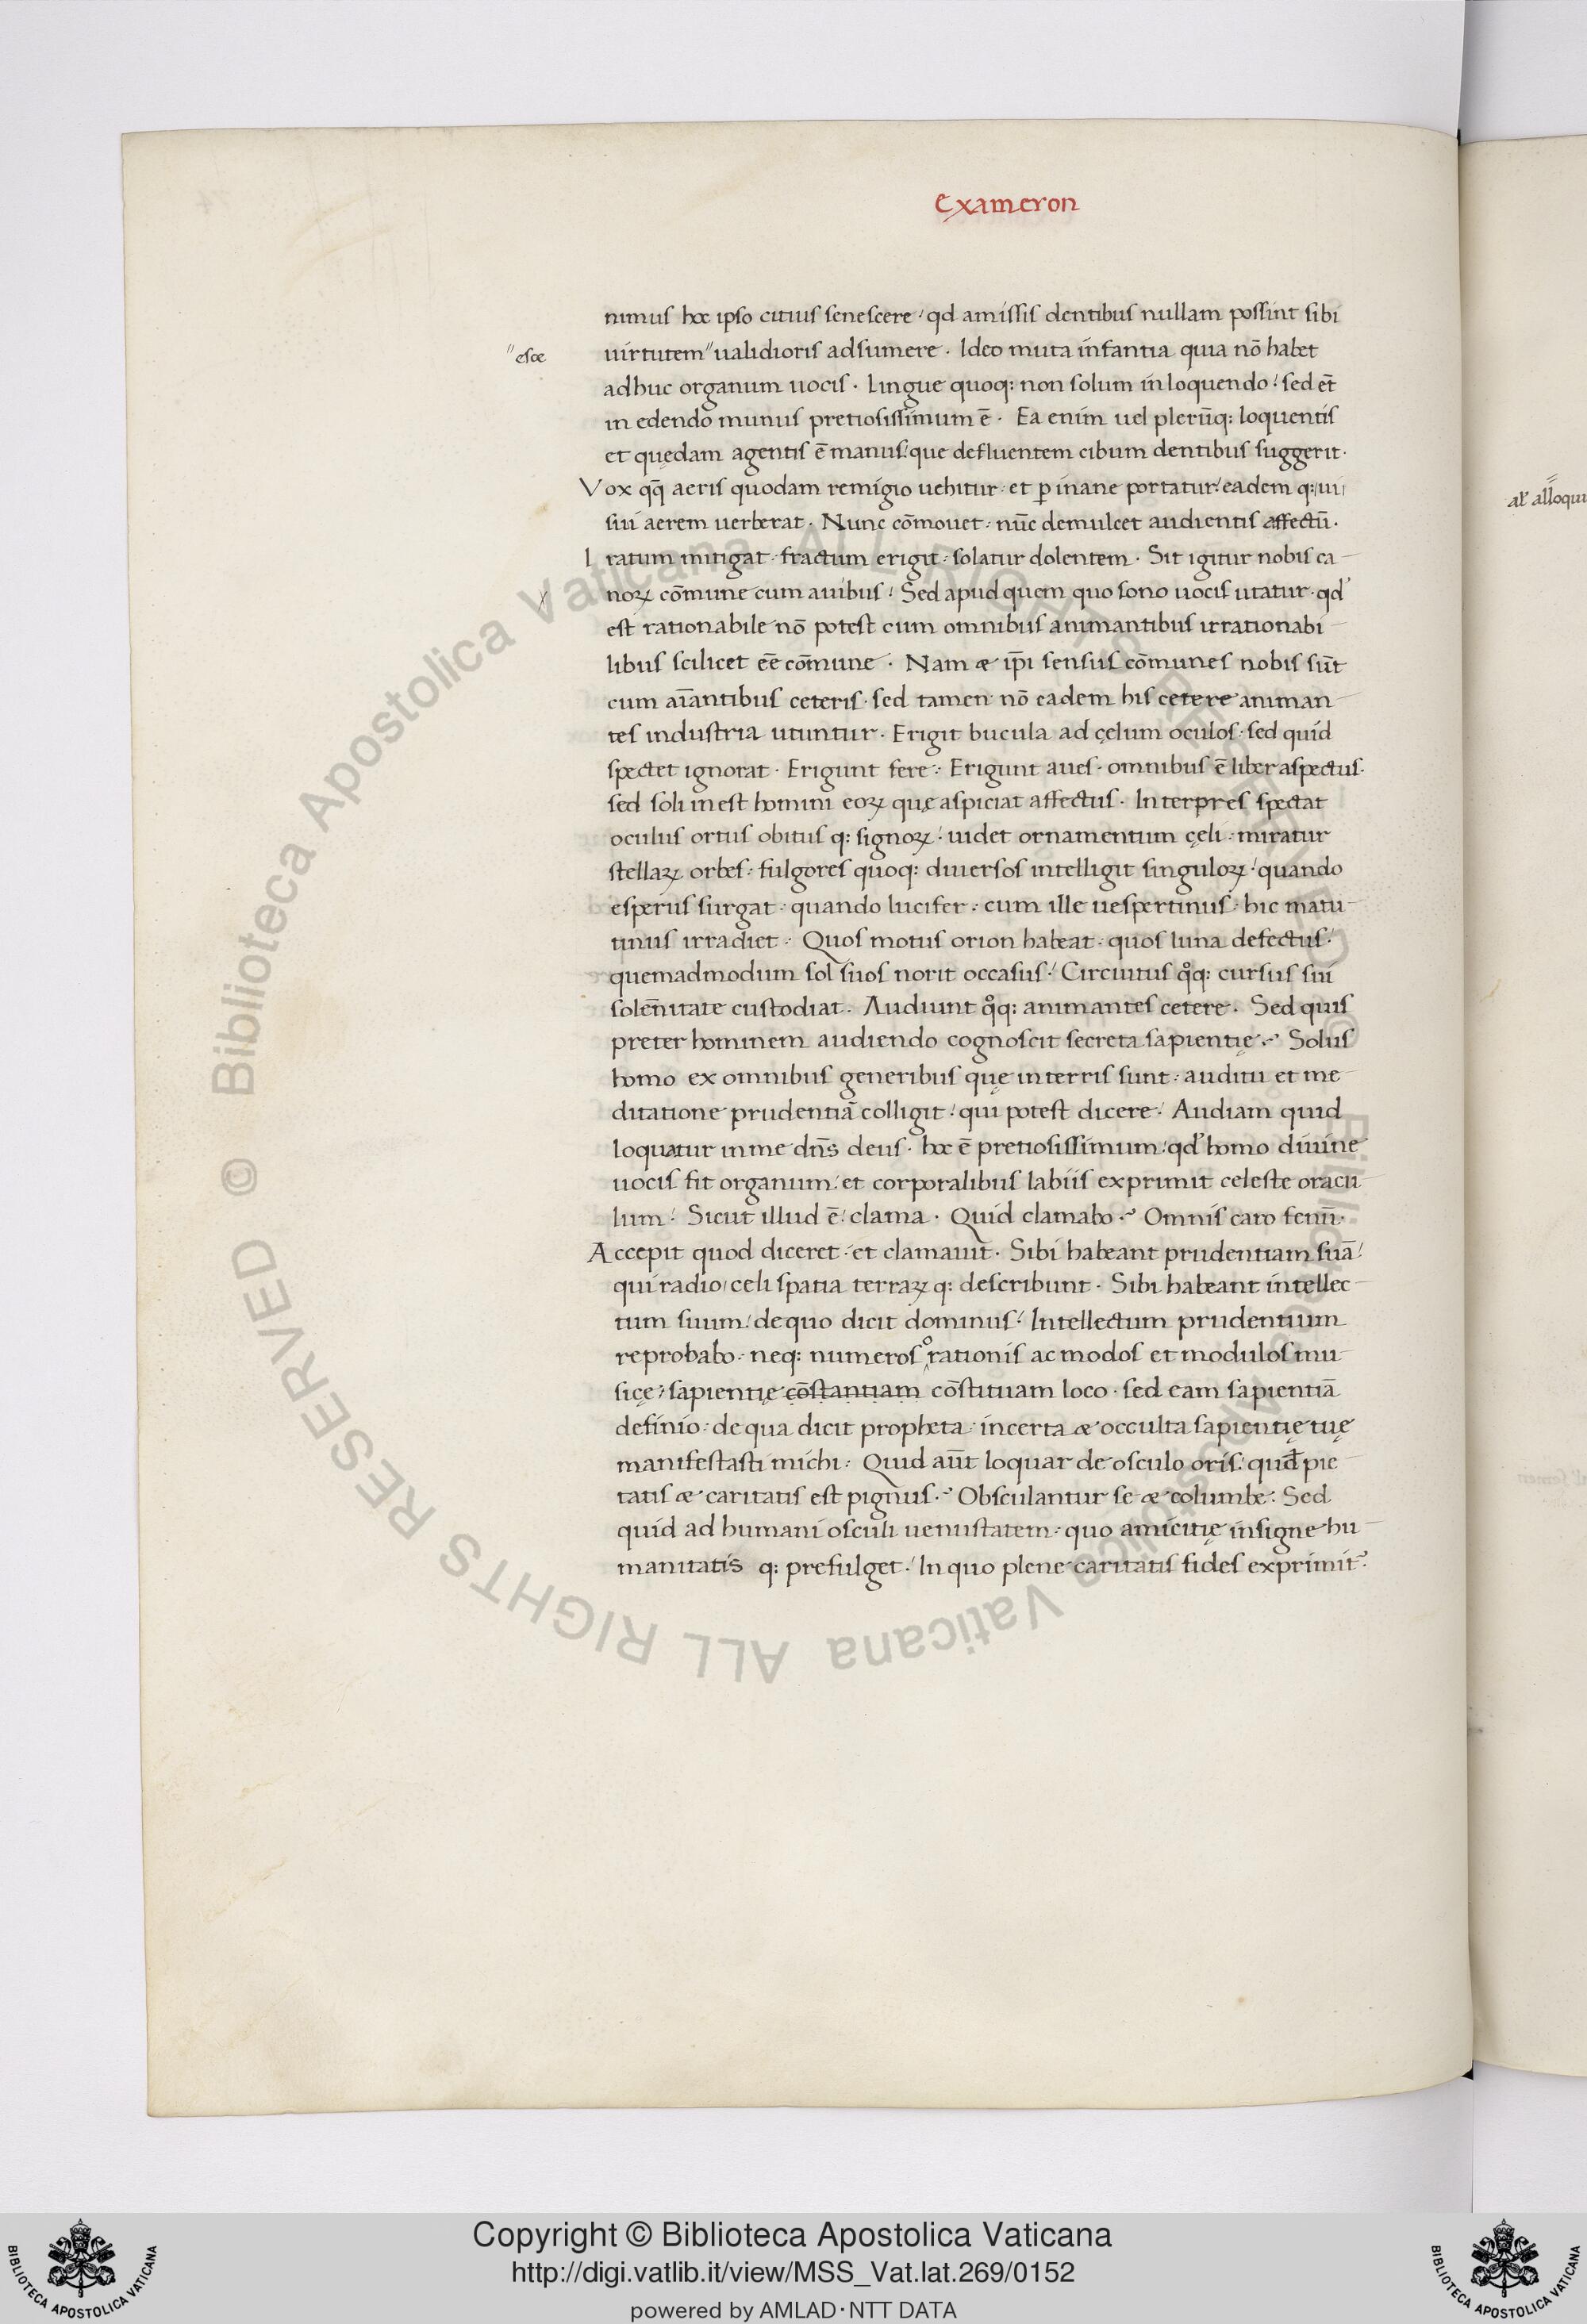 Exameron
nimus hoc ipso citius senescere / qd amissis dentibus nullam possint sibi
" esce
uirtutem " ualidioris adsumere · Ideo muta infantia quia nō habet
adhuc organum uocis · Lingue quoq: non solum in loquendo / sed et̄
in edendo munus pretiosissimum ē · Ea enim uel plerūq: loquentis
et quędam agentis ē manus / que defluentem cibum dentibus suggerit ·
Vox qq̄ aeris quodam remigio uehitur · et ꝑ inane portatur / eadem q: / ui
sui aerem uerberat · Nunc cōmouet · nūc demulcet audientis affectū ·
Iratum mitigat · fractum erigit · solatur dolentem · Sit igitur nobis ca-
noꝝ cōmune cum auibus / Sed apud quem quo sono uocis utatur · qd'
est rationabile nō potest cum omnibus animantibus irrationabi-
libus scilicet eē cōmune · Nam æ ip̄i sensus cōmunes nobis sūt
cum aīantibus ceteris · sed tamen nō eadem his cetere animan-
tes industria utuntur · Erigit bucula ad cęlum oculos · sed quid
spectet ignorat · Erigunt fere · Erigunt aues · omnibus ē liber aspectus ·
sed soli inest homini eoꝝ quę aspiciat affectus · Interpres spectat
oculus ortus obitus q: signoꝝ / uidet ornamentum cęli · miratur
stellaꝝ orbes · fulgores quoq: diuersos intelligit singuloꝝ / quando
esperus surgat · quando lucifer · cum ille uespertinus · hic matu-
tinus irradiet · Quos motus orion habeat · quos luna defectus /
quemadmodum sol suos norit occasus / Circuitus qͦq: cursus sui
solen̄itate custodiat · Audiunt qͦq: animantes cetere · Sed quis
preter hominem audiendo cognoscit secreta sapientię · Solus
homo ex omnibus generibus quę in terris sunt · auditu et me-
ditatione prudentiā colligit / qui potest dicere / Audiam quid
loquatur in me dn̄s deus · hoc ē pretiosissimum / qd' homo diuine
uocis fit organum / et corporalibus labiis exprimit celeste oracu-
lum / Sicut illud ē / clama · Quid clamabo · Omnis caro fenū ·
Accepit quod diceret · et clamauit · Sibi habeant prudentiam suā /
qui radio / celi spatia terraꝝ q: describunt · Sibi habeant intellec-
tum suum / de quo dicit dominus / Intellectum prudentium
reprobabo · neq: numeros ͦrationis ac modos et modulos mu-
sicę / sapientię cōstantiam cōstituam loco · sed eam sapientiā
definio · de qua dicit propheta · incerta æ occulta sapientię tuę
manifestasti michi · Quid aūt loquar de osculo oris / qud̄ pie-
tatis æ caritatis est pignus · Obsculantur se æ columbe · Sed
quid ad humani osculi uenustatem · quo amicitię insigne hu-
manitatis q: prefulget / In quo plene caritatis fides exprimit᾿ ·
al' alloqui
© Biblioteca Apostolica Vaticana ALL RIGHTS RESERVED © Biblioteca Apostolica Vaticana ALL RIGHTS RESERVED
Copyright © Biblioteca Apostolica Vaticana
http://digi.vatlib.it/view/MSS_Vat.lat.269/0152
powered by AMLAD·NTT DATA
BIBLIOTECA APOSTOLICA VATICANA
BIBLIOTECA APOSTOLICA VATICANA